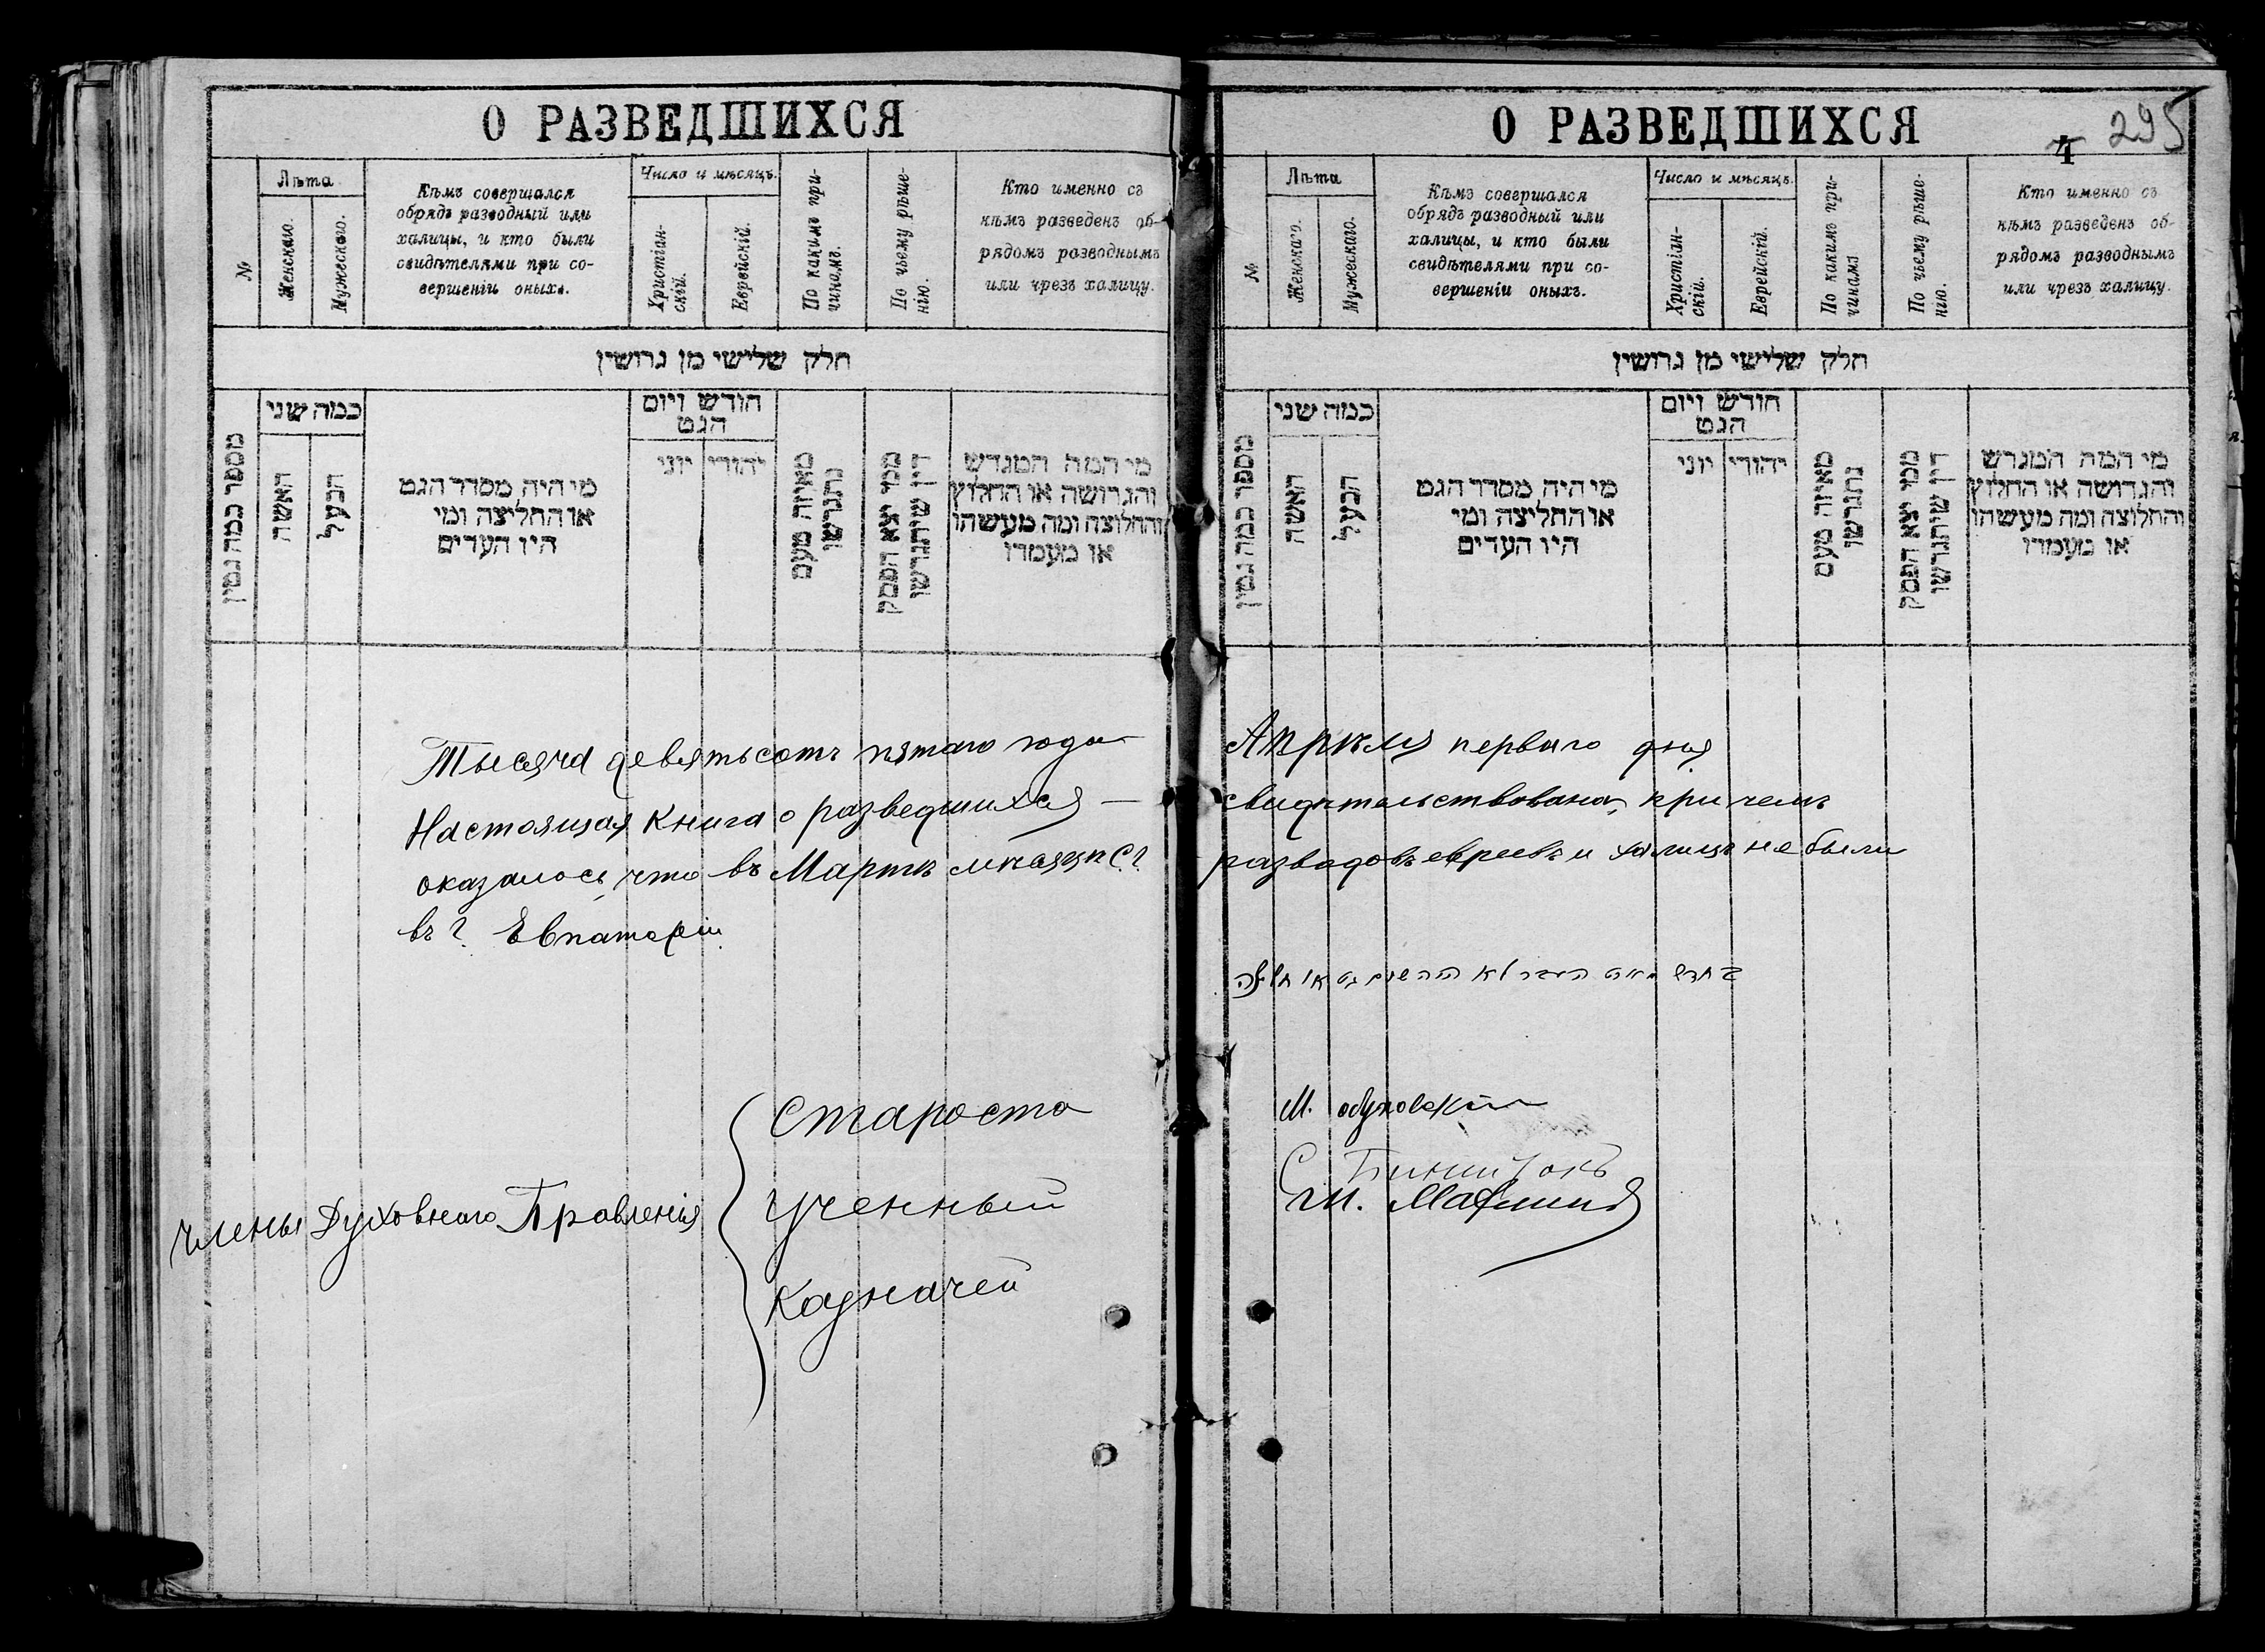 О РАЗВЕДШИХСЯ
№
Лѣта
Женскаго.
Мужескаго.
Кѣмъ совершался
обрядъ разводный или
халицы, и кто были
свидѣтелями при со-
вершеніи оныхъ.
Число и мѣсяцъ.
Христіан-
скій.
Еврейскій.
По какимъ при-
чинамъ.
По чьему рѣше-
нію.
Кто именно съ
кѣмъ разведенъ об-
рядомъ разводнымъ
или чрезъ халицу.
חלק שלישי מן גרושין
מספר כמה גטין
כמה שני
האשה
הבעל
מי היה מסדר הגט
או החליצה ומי
היו העדים
חודש ויום
הגט
יהודי
יוני
מאיזה טעם
נתגרשו
מפי יצא הפסק
דין שיתגרשו
מי המה המגרש
והגרושה או החלוץ
והחלוצה ומה מעשהו
או מעמדו
Тысяча девятьсотъ пятаго года
Настоящая книга о разведшихся —
оказалось, что въ Мартѣ мѣсяцѣ с. г.
въ г. Евпаторіи
Члены Духовнаго Правленія
Староста
Ученный
Казначей
О РАЗВЕДШИХСЯ
4
295
№
Лѣта
Женскаго.
Мужескаго.
Кѣмъ совершался
обрядъ разводный или
халицы, и кто были
свидѣтелями при со-
вершеніи оныхъ.
Число и мѣсяцъ.
Христіан-
скій.
Еврейскій.
По какимъ при-
чинамъ
По чьему рѣше-
нію.
Кто именно съ
кѣмъ разведенъ об-
рядомъ разводнымъ
или чрезъ халицу.
חלק שלישי מן גרושין
מספר כמה גטין
כמה שני
האשה
הבעל
מי היה מסדר הגט
או החליצה ומי
היו העדים
חודש ויום
הגט
יהודי
יוני
מאיזה טעם
נתגרשו
מפי יצא הפסק
דין שיתגרשו
מי המה המגרש
והגרושה או החלוץ
והחלוצה ומה מעשהו
או מעמדו
Апрѣля перваго дня
свидѣтельствована, при чемъ
разводовъ евреевъ и халицъ не были
М.
С.